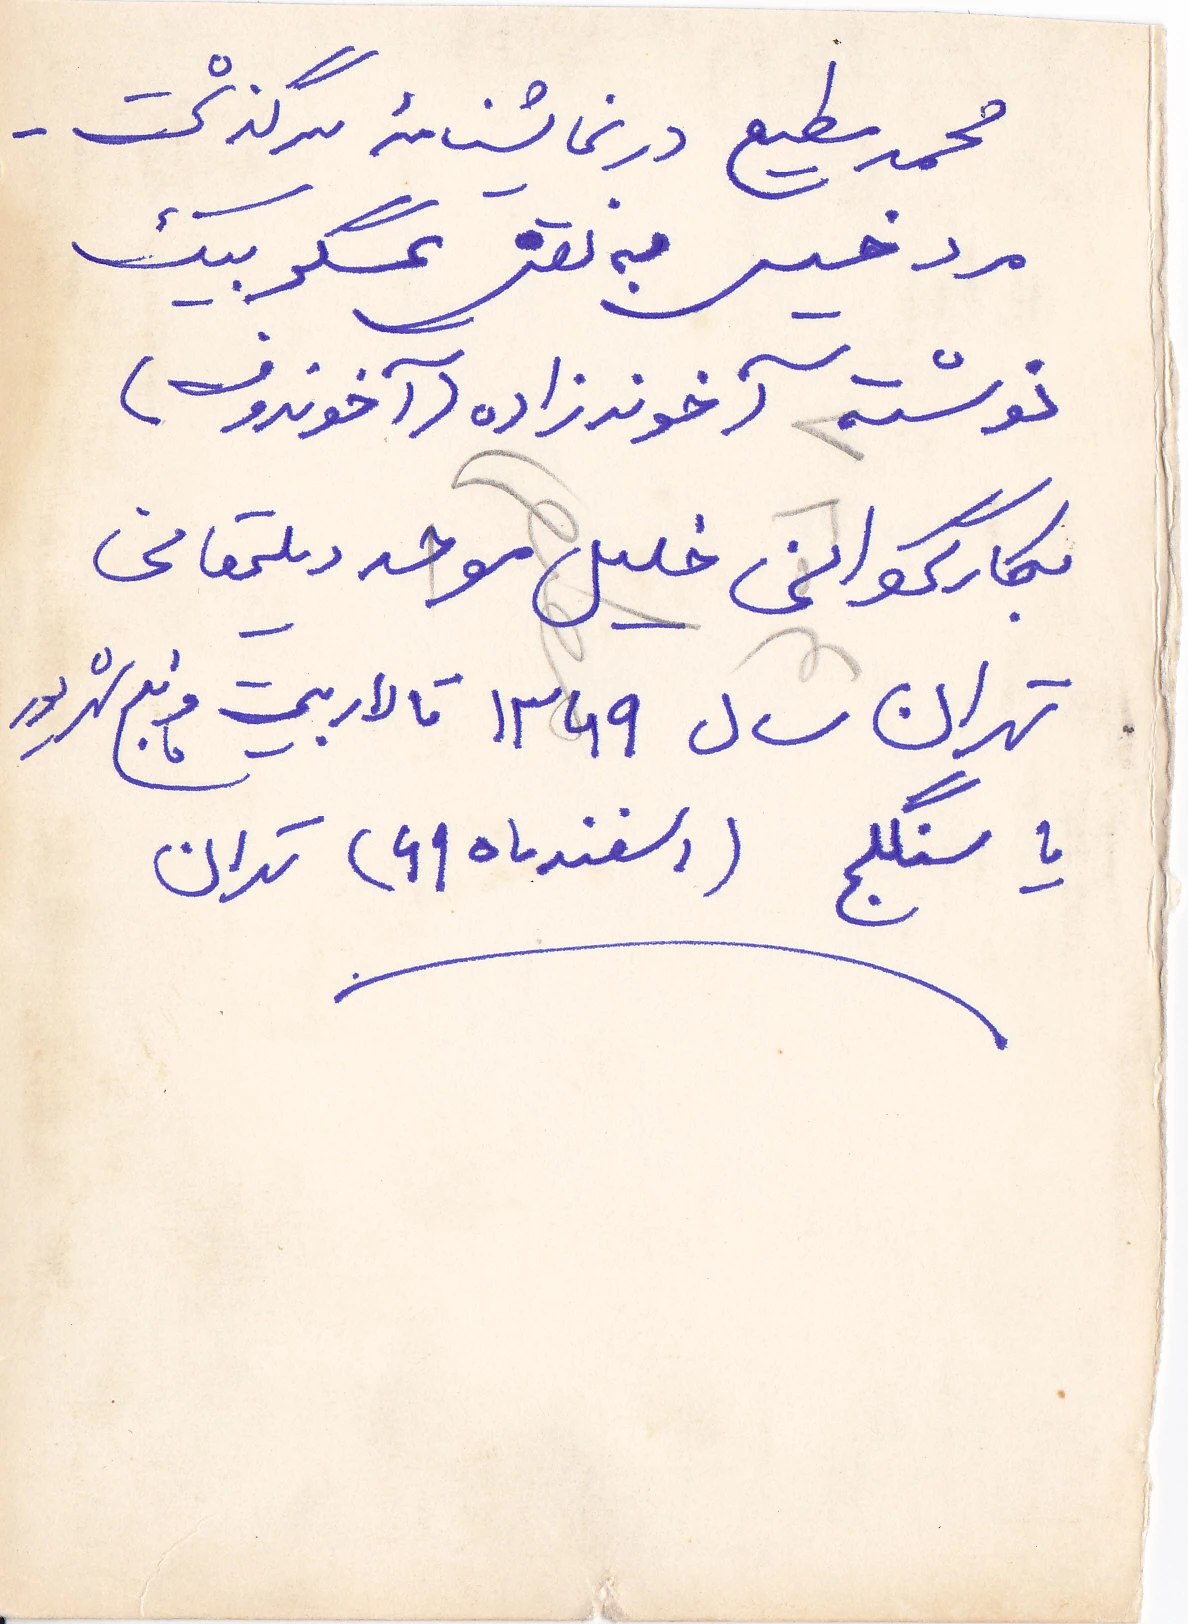 محمد مطیع در نمایشنامهٔ سرگذشت -
مرد خسیس به نقش عسگر بیک
نوشته آخوندزاده (آخوندوف)
بکارگردانی خلیل موحد دیلمقانی
تهران سال ۱۳۴۹ تالار بیست و پنج شهریور
یا سنگلج (اسفندماه ۴۹) تهران